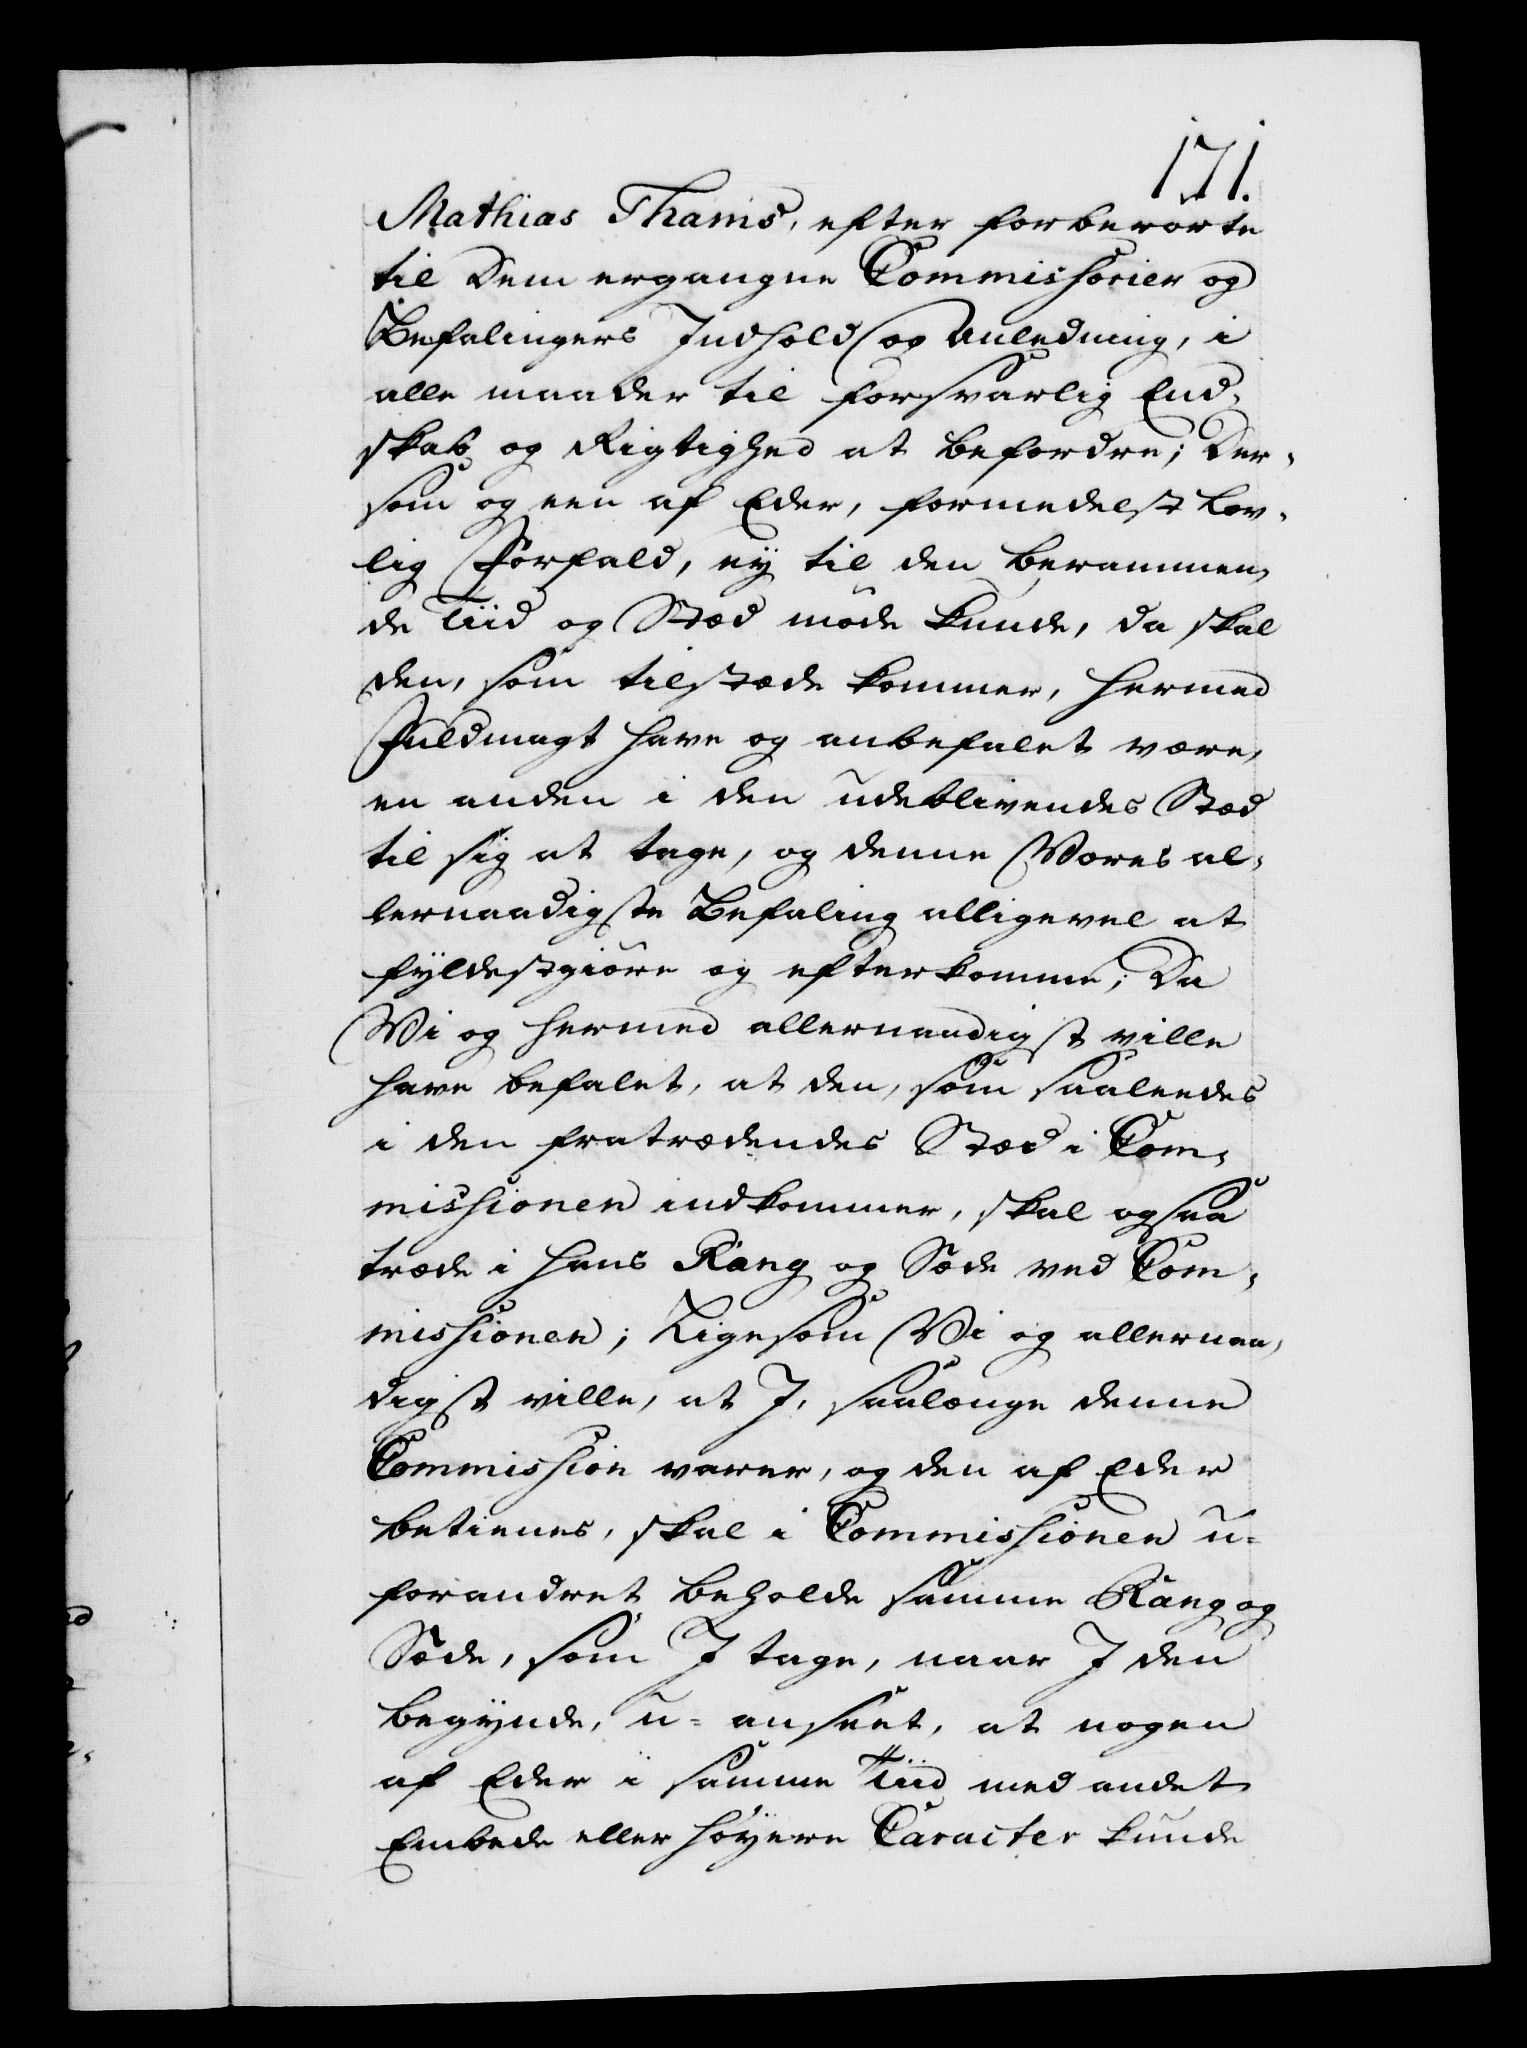 171.
Mathias Thams, efter forberørte
til Dem ergangne Commissorier og
Befalingers Indhold og Anledning, i
alle maader til forsvarlig End-
skab og Rigtighed at befordre; Der-
som og een af Eder, formedelst Lov-
lig Forfald, ey til den berammen-
de Tiid og Stæd møde kunde, da skal
den, som tilstæde kommer, hermed
Fuldmagt have og anbefalet være,
en anden i den udeblivendes Stæd
til sig at tage, og denne Vores al-
lernaadigste Befaling alligevel at
fyldestgiøre og efterkomme; Da
Vi og hermed allernaadigst ville
have befalet, at den, som saaleedes
i den fratrædendes Stæd i Com-
missionen indkommer, skal ogsaa
træde i hans Rang og Sæde ved Com-
missionen; Ligesom Vi og allernaa-
digst ville, at I, saalænge denne
Commission varer, og den af Eder
betienes, skal i Commissionen u-
forandret beholde samme Rang og
Sæde, som I tage, naar I den
begynde, u-anseet, at nogen
af Eder i samme Tiid med andet
Embede eller høyere Caracter kunde